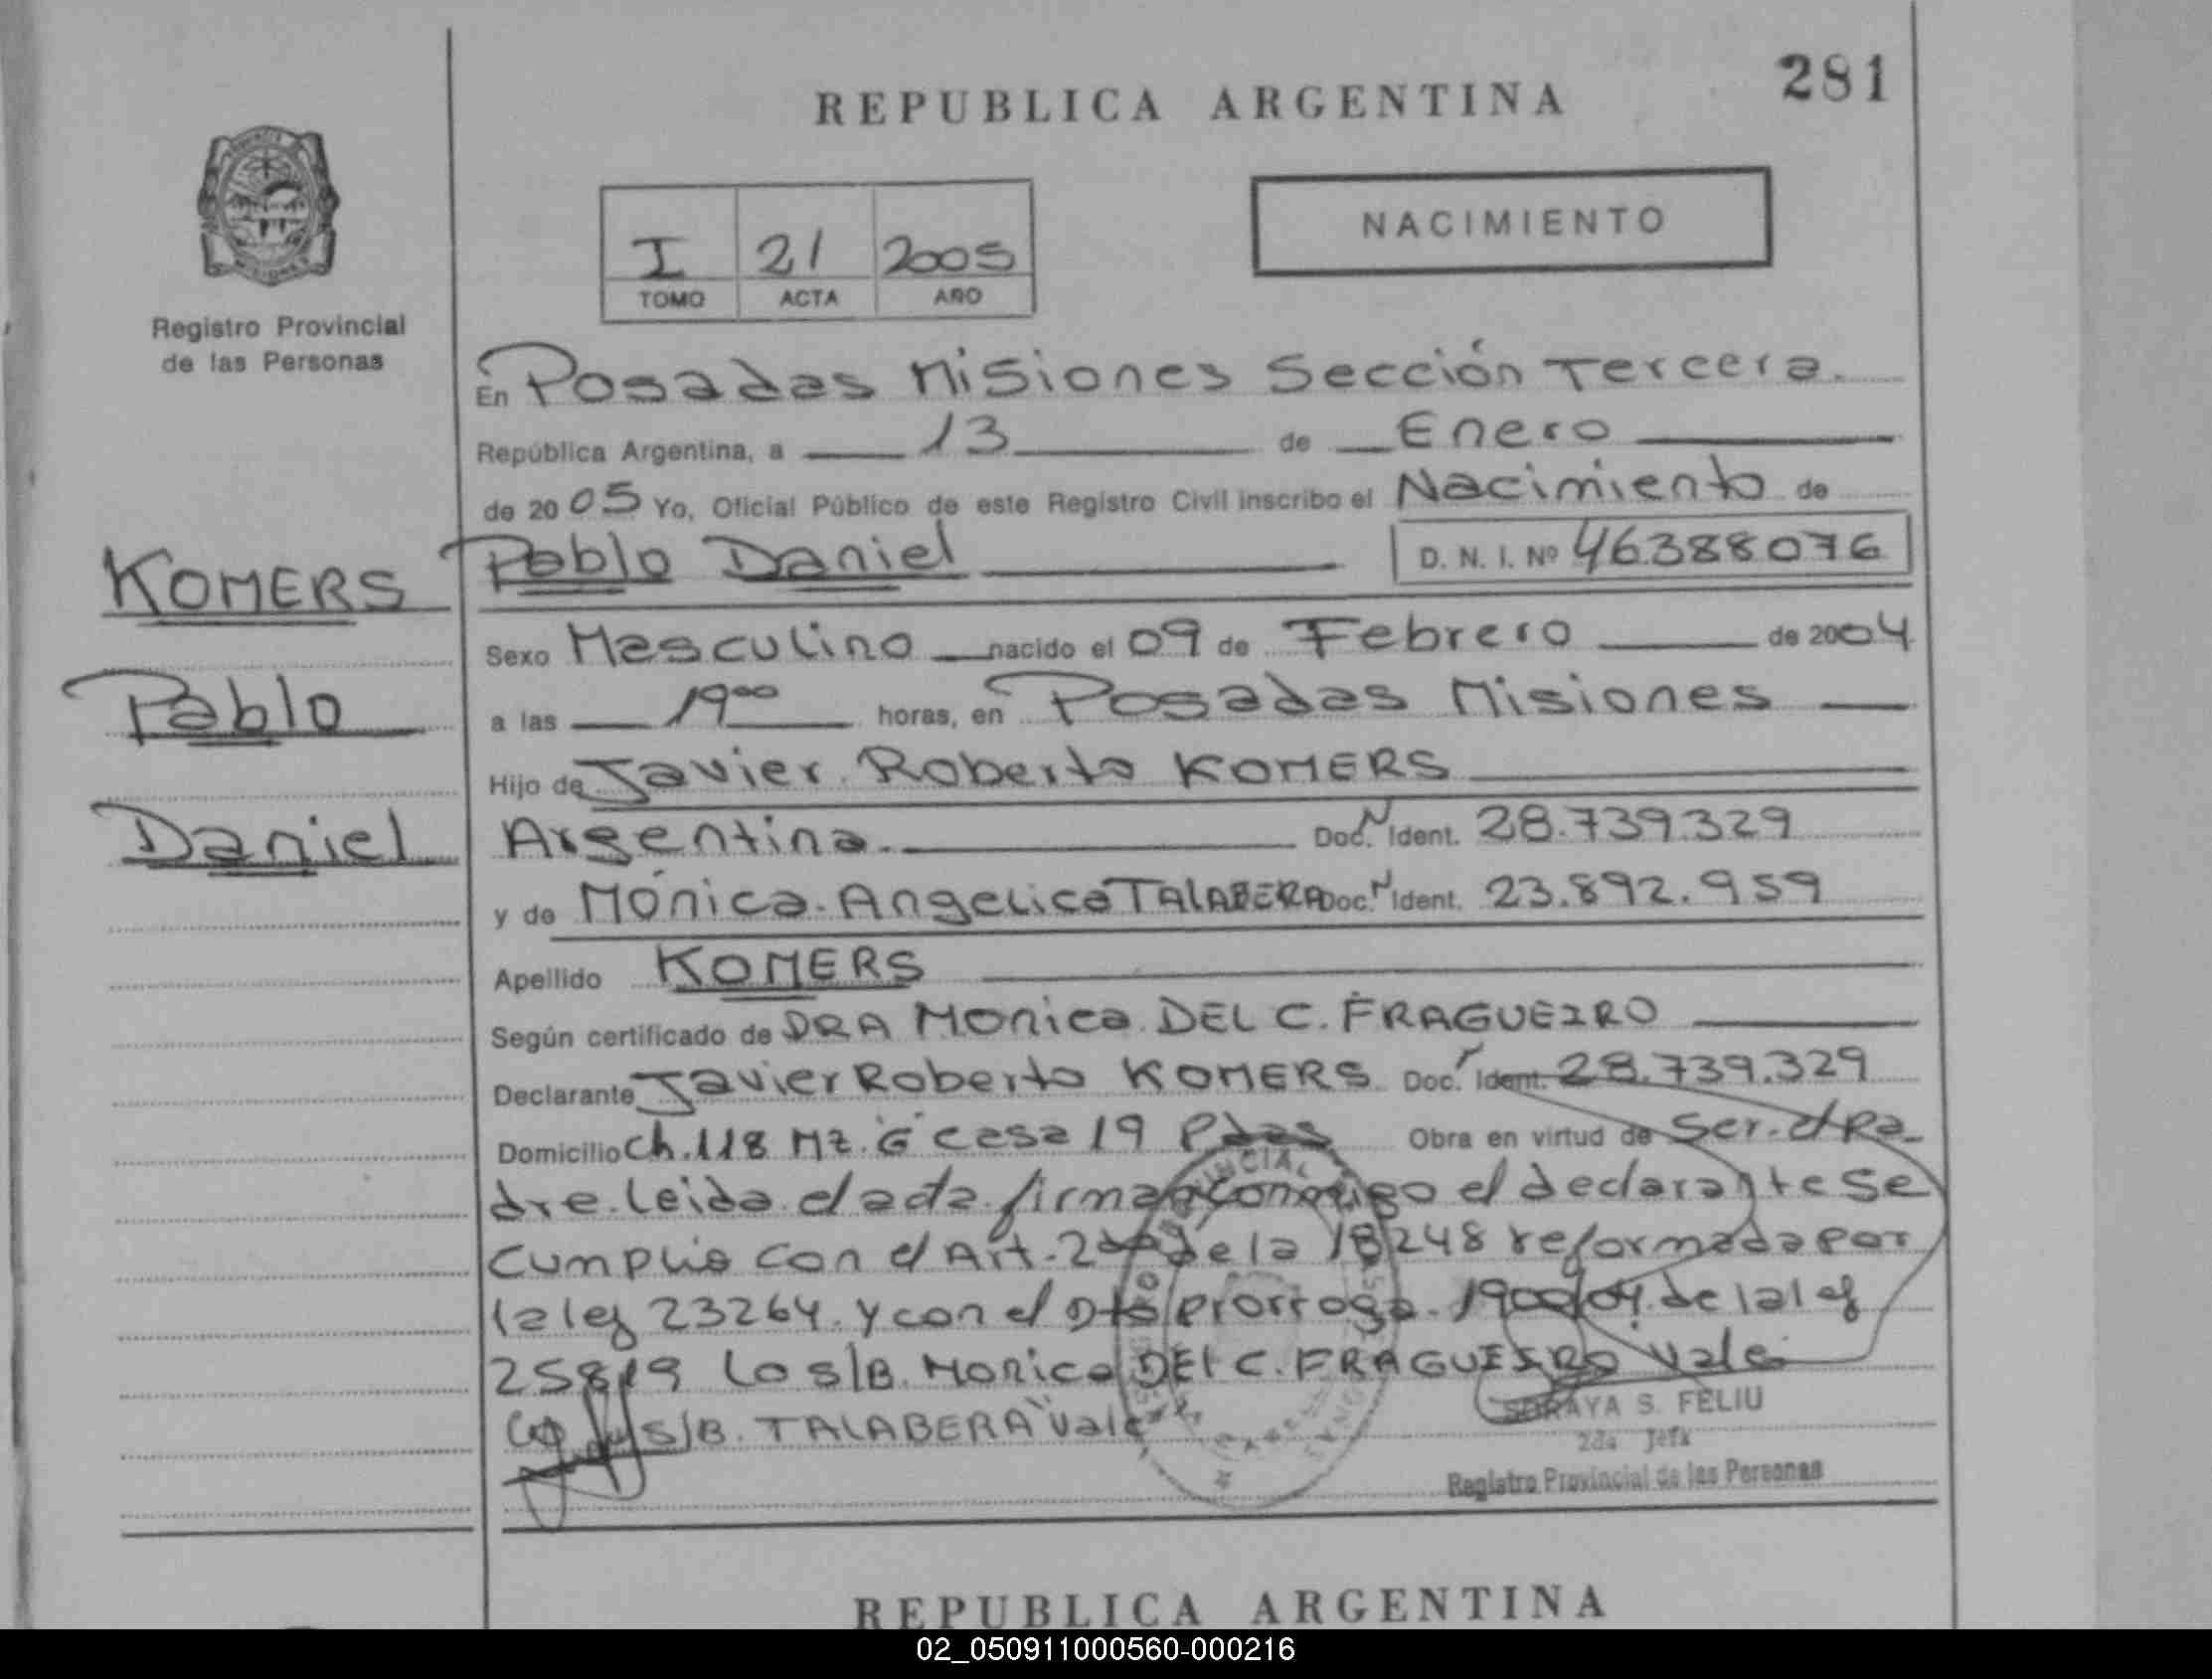 281
REPUBLICA ARGENTINA
NACIMIENTO
I 21 2005
TOMO ACTA AÑO
Registro Provincial
de las Personas
En Posadas Misiones Sección Tercera.
República Argentina, a 13 de Enero
de 2005 Yo, Oficial Público de este Registro Civil inscribo el Nacimiento de
Pablo Daniel D. N. I. Nº 46.388.076
KOMERS
Pablo
Daniel
Sexo Masculino nacido el 09 de Febrero de 2004
a las 19 00 horas, en Posadas Misiones
Hijo de Javier Roberto KOMERS
Argentina. Doc. N Ident. 28.739.329
y de Mónica Angelica TALABERA Doc. N Ident. 23.892.959
Apellido KOMERS
Según certificado de DRA Monica DEL C. FRAGUEIRO
Declarante Javier Roberto KOMERS Doc. Ident. 28.739.329
Domicilio Ch. 118 Mz. G casa 19 Pdas Obra en virtud de Ser el Pa-
dre leida el acta firma conmigo el declarante se
cumplio con el Art. 2 de la 18248 reformada por
la ley 23264 y con el Dto prorroga 1900/04 de la ley
25819 Lo s/B. Monica DEL C. FRAGUEIRO Vale
s/B. TALABERA Vale
SORAYA S. FELIU
2da Jefa
Registro Provincial de las Personas
REPUBLICA ARGENTINA
02_050911000560-000216